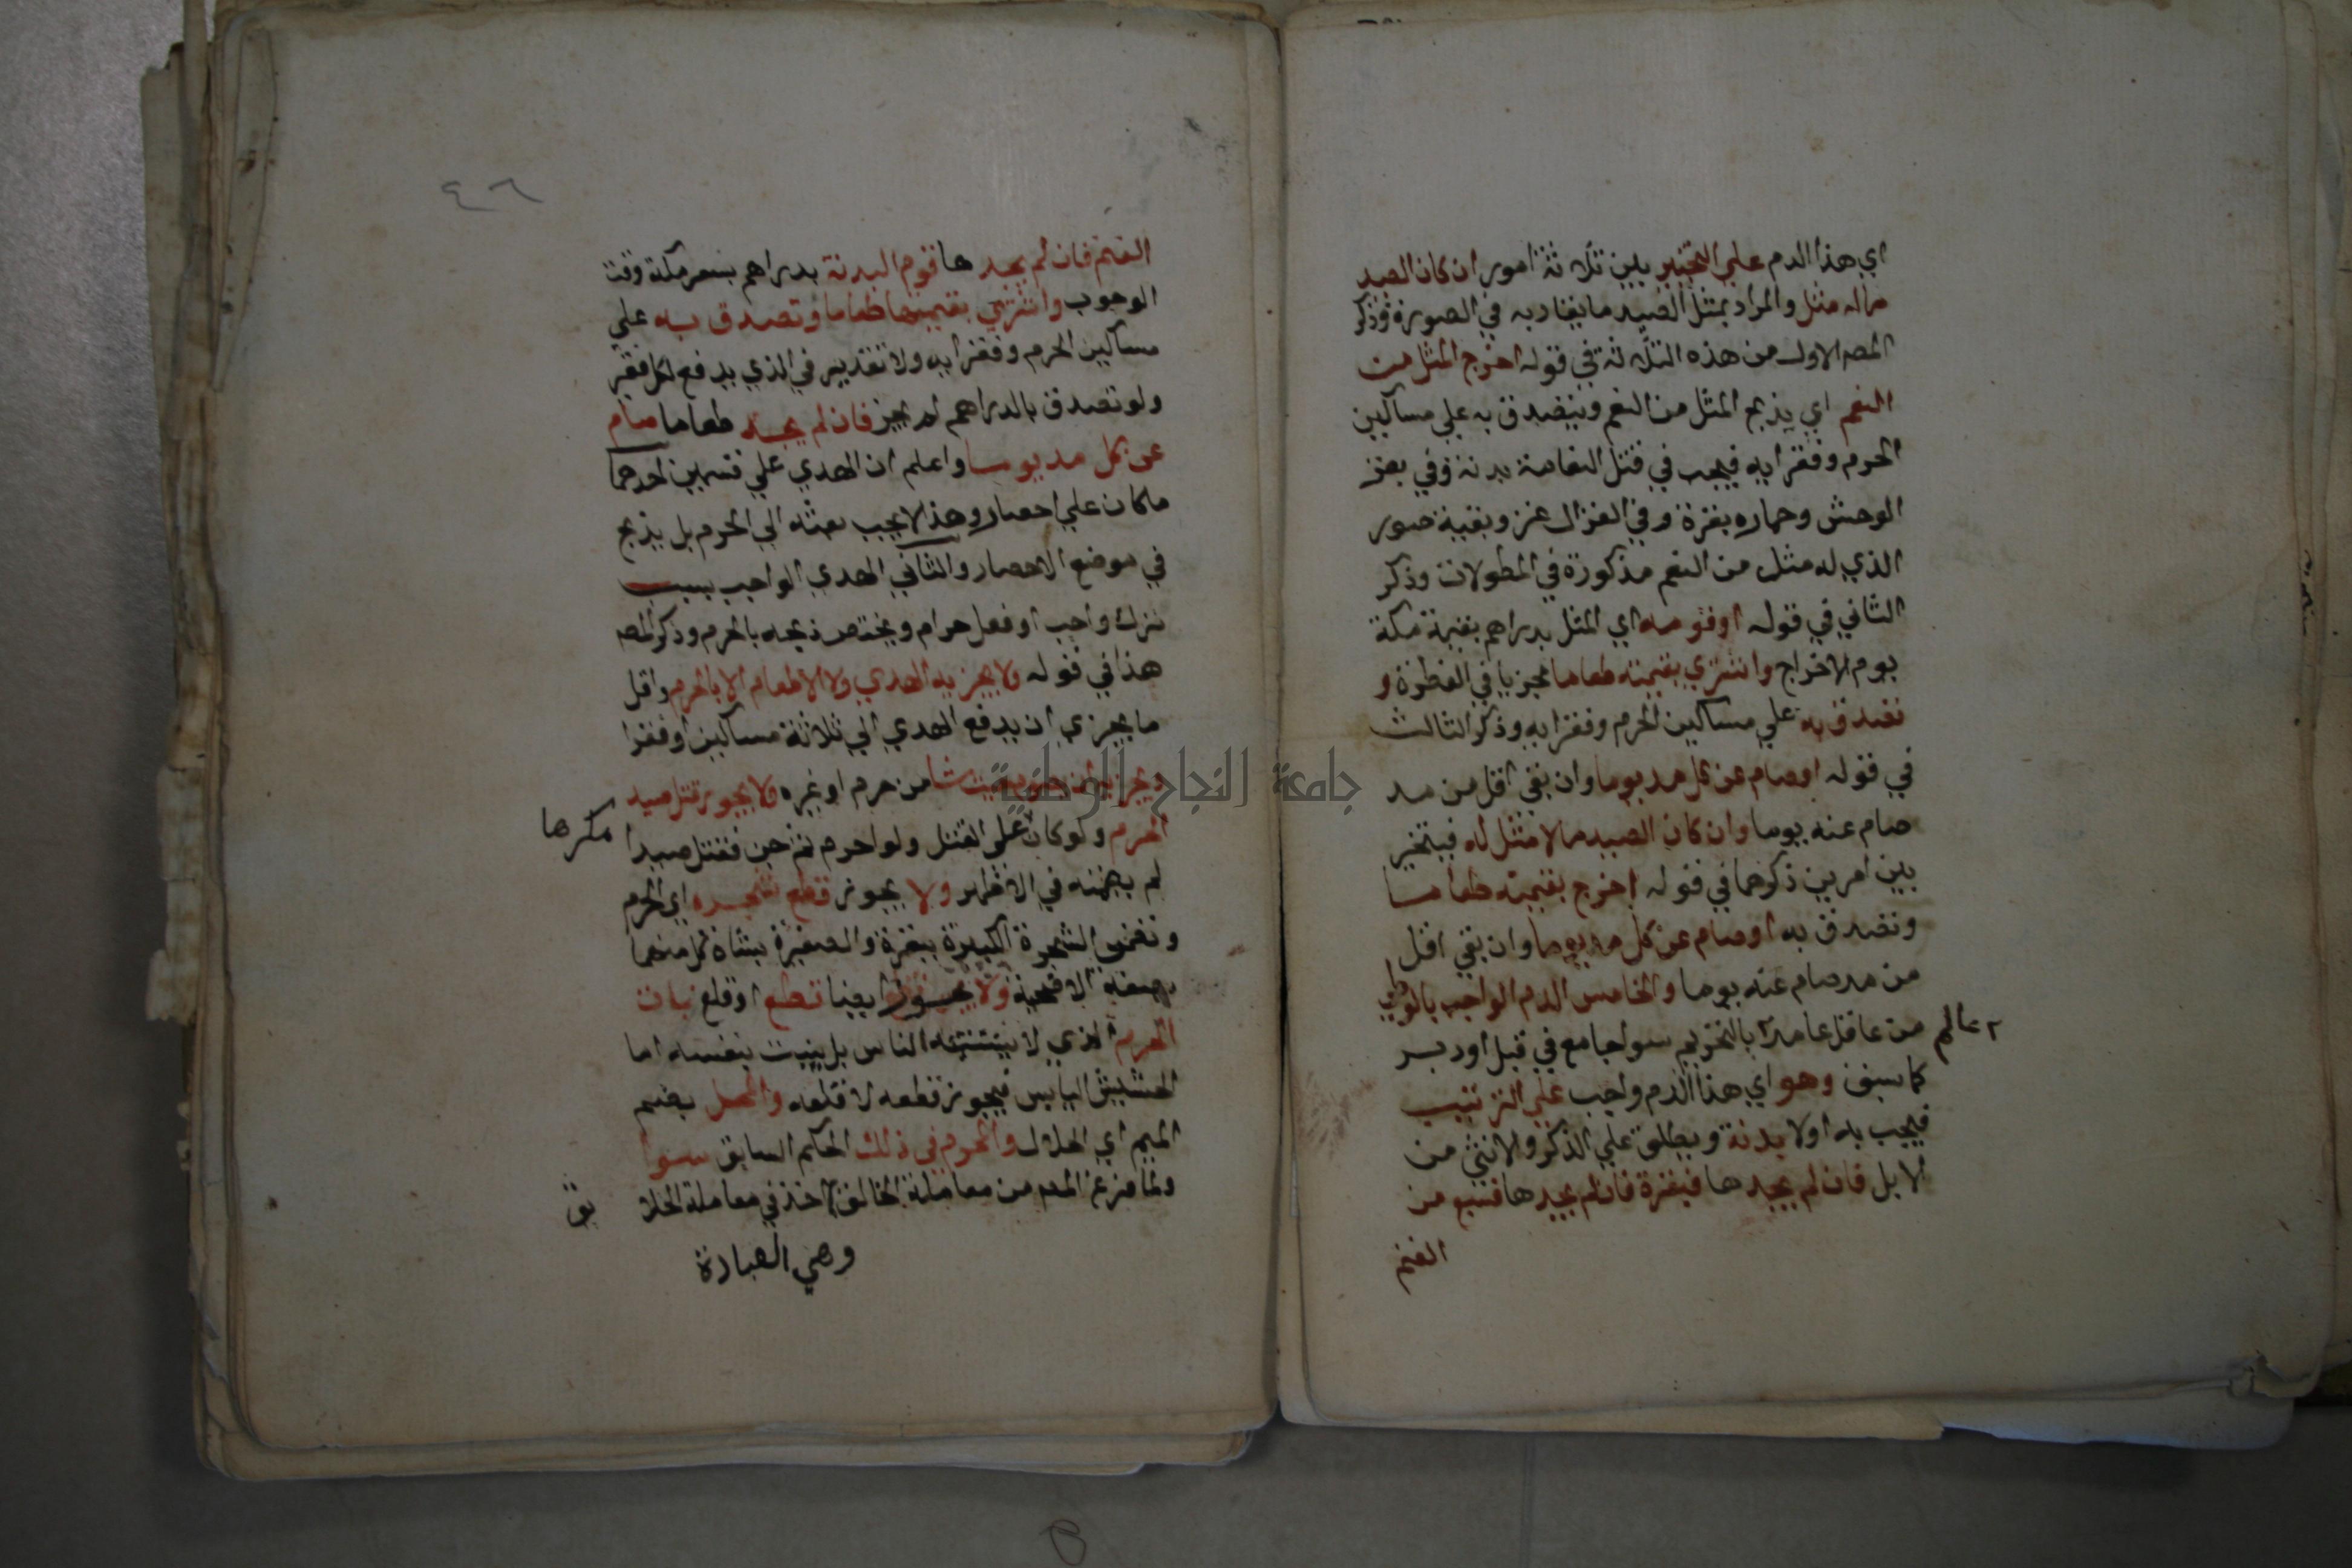 اي هذا الدم علي التخيير بين ثلاثة امور ان كان الصيد
مما له مثل والمراد بمثل الصيد ما يقاربه في الصورة وذكر
المصـ الاول من هذه الثلاثة في قوله اخرج المثل من
النعم اي يذبح المثل من النعم ويتصدق به علي مساكين
الحرم وفقرايه فيجب في قتل النعامة بدنة وفي بقر
الوحش وحماره بقرة وفي الغزال عنز وبقية صور
الذي له مثل من النعم مذكورة في المطولات وذكر
الثاني في قوله او قومه اي المثل بدراهم بقيمة مكة
يوم الاخراج واشتري بقيمته طعاما مجزيا في الفطرة و
تصدق به علي مساكين الحرم وفقرايه وذكر الثالث
في قوله او صام عن كل مد يوما وان بقي اقل من مد
صام عنه يوما وان كان الصيد مما لا مثل له فيتخير
بين امرين ذكرهما في قوله اخرج بقيمته طعاما
وتصدق به او صام عن كل مد يوما وان بقي اقل
من مد صام عنه يوما والخامس الدم الواجب بالوطي
من عاقل عامدا بالتحريم سوا جامع في قبل او دبر
عالم
كما سبق وهو اي هذا الدم واجب علي الترتيب
فيجب به اولا بدنة ويطلق علي الذكر والانثي من
الابل فان لم يجدها فبقرة فان لم يجدها فسبع من
الغنم
٤٦
الغنم فان لم يجدها قوم البدنة بدراهم بسعر مكة وقت
الوجوب واشتري بقيمتها طعاما وتصدق به علي
مساكين الحرم وفقرايه ولا تقدير في الذي يدفع لكل فقير
ولو تصدق بالدراهم لم يجز فان لم يجد طعاما صام
عن كل مد يوما واعلم ان الهدي علي قسمين احدهما
ما كان علي احصار وهذا لا يجب بعثه الي الحرم بل يذبح
في موضع الاحصار والثاني الهدي الواجب بسبب
ترك واجب او فعل حرام ويختص ذبحه بالحرم وذكر المصـ
هذا في قوله ولا يجزيه الهدي ولا الاطعام الا بالحرم واقل
ما يجزي ان يدفع الهدي الي ثلاثة مساكين او فقرا
ويجزيه ان يصوم حيث شا من حرم او غيره ولا يجوز قتل صيد
الحرم ولو كان علي القتل ولو احرم ثم جن فقتل صيدا
مكرها
لم يضمنه في الاظهر ولا يجوز قطع شجره اي الحرم
وتضمن الشجرة الكبيرة ببقرة والصغيرة بشاة كل منهما
بصفة الاضحية ولا يجوز ايضا قطع او قلع نبات
الحرم الذي لا يستنبته الناس بل ينبت بنفسه اما
الحشيش اليابس فيجوز قطعه لا قلعه والمحل بضم
الميم اي الحلال والمحرم في ذلك الحكم السابق سوا
ولما فرغ المصـ من معاملة الخالق اخذ في معاملة الخلا
يق
وهي العبادة
جامعة النجاح الوطنية